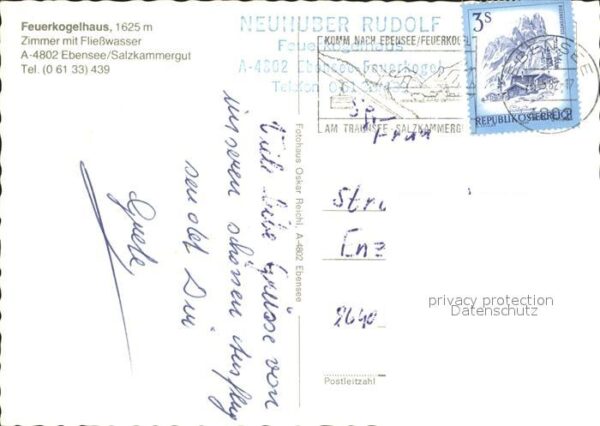 Feuerkogelhaus, 1625 m
Zimmer mit Fließwasser
A-4802 Ebensee/Salzkammergut
Tel. (0 61 33) 439
NEUHUBER RUDOLF
Feuerkogelhaus
A-4802 Ebensee-Feuerkogel
Telefon 0 61 33/439
KOMM NACH EBENSEE/FEUERKOGEL
AM TRAUNSEE, SALZKAMMERG
EBENSEE
3 S
REPUBLIK ÖSTERREICH
Viele liebe Grüsse von
unseren schönen Ausflug
sendet Dir
Grete
Fotohaus Oskar Reichl, A-4802 Ebensee
Frau
Str
Enz
Postleitzahl
privacy protection
Datenschutz